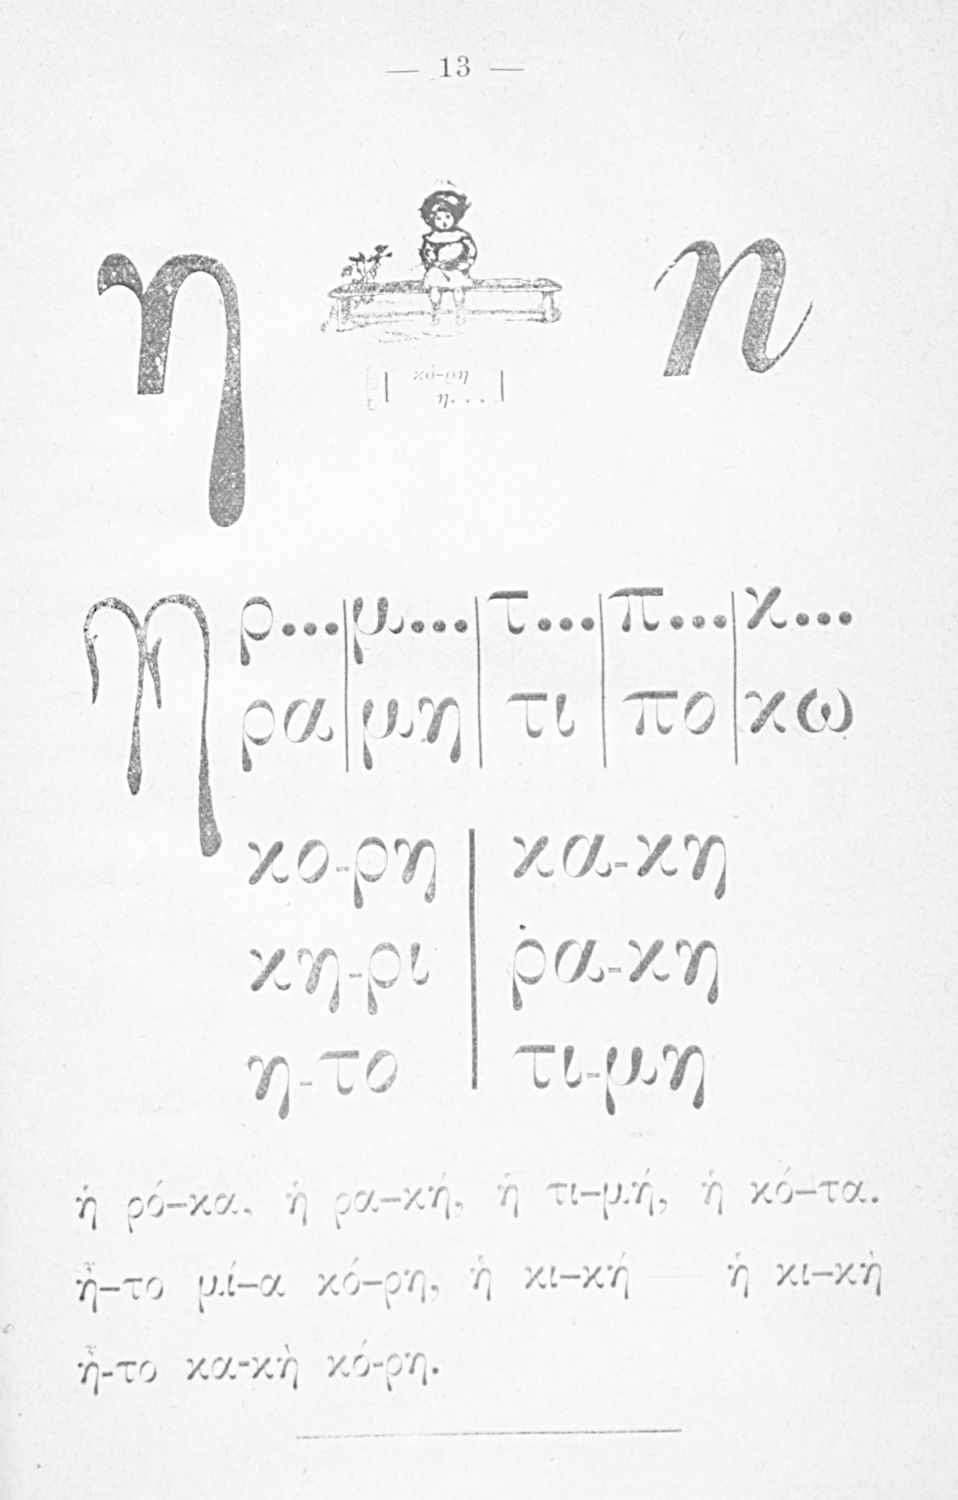 — 13 —
η η
κό-ρη
η...
η ρ... μ... τ... π... κ...
ρα μη τι πο κω
κο-ρη κα-κη
κη-ρι ρα-κη
η-το τι-μη
ἡ ρό-κα, ἡ ρα-κή, ἡ τι-μή, ἡ κό-τα.
ἦ-το μί-α κό-ρη, ἡ κι-κή — ἡ κι-κὴ
ἦ-το κα-κὴ κό-ρη.